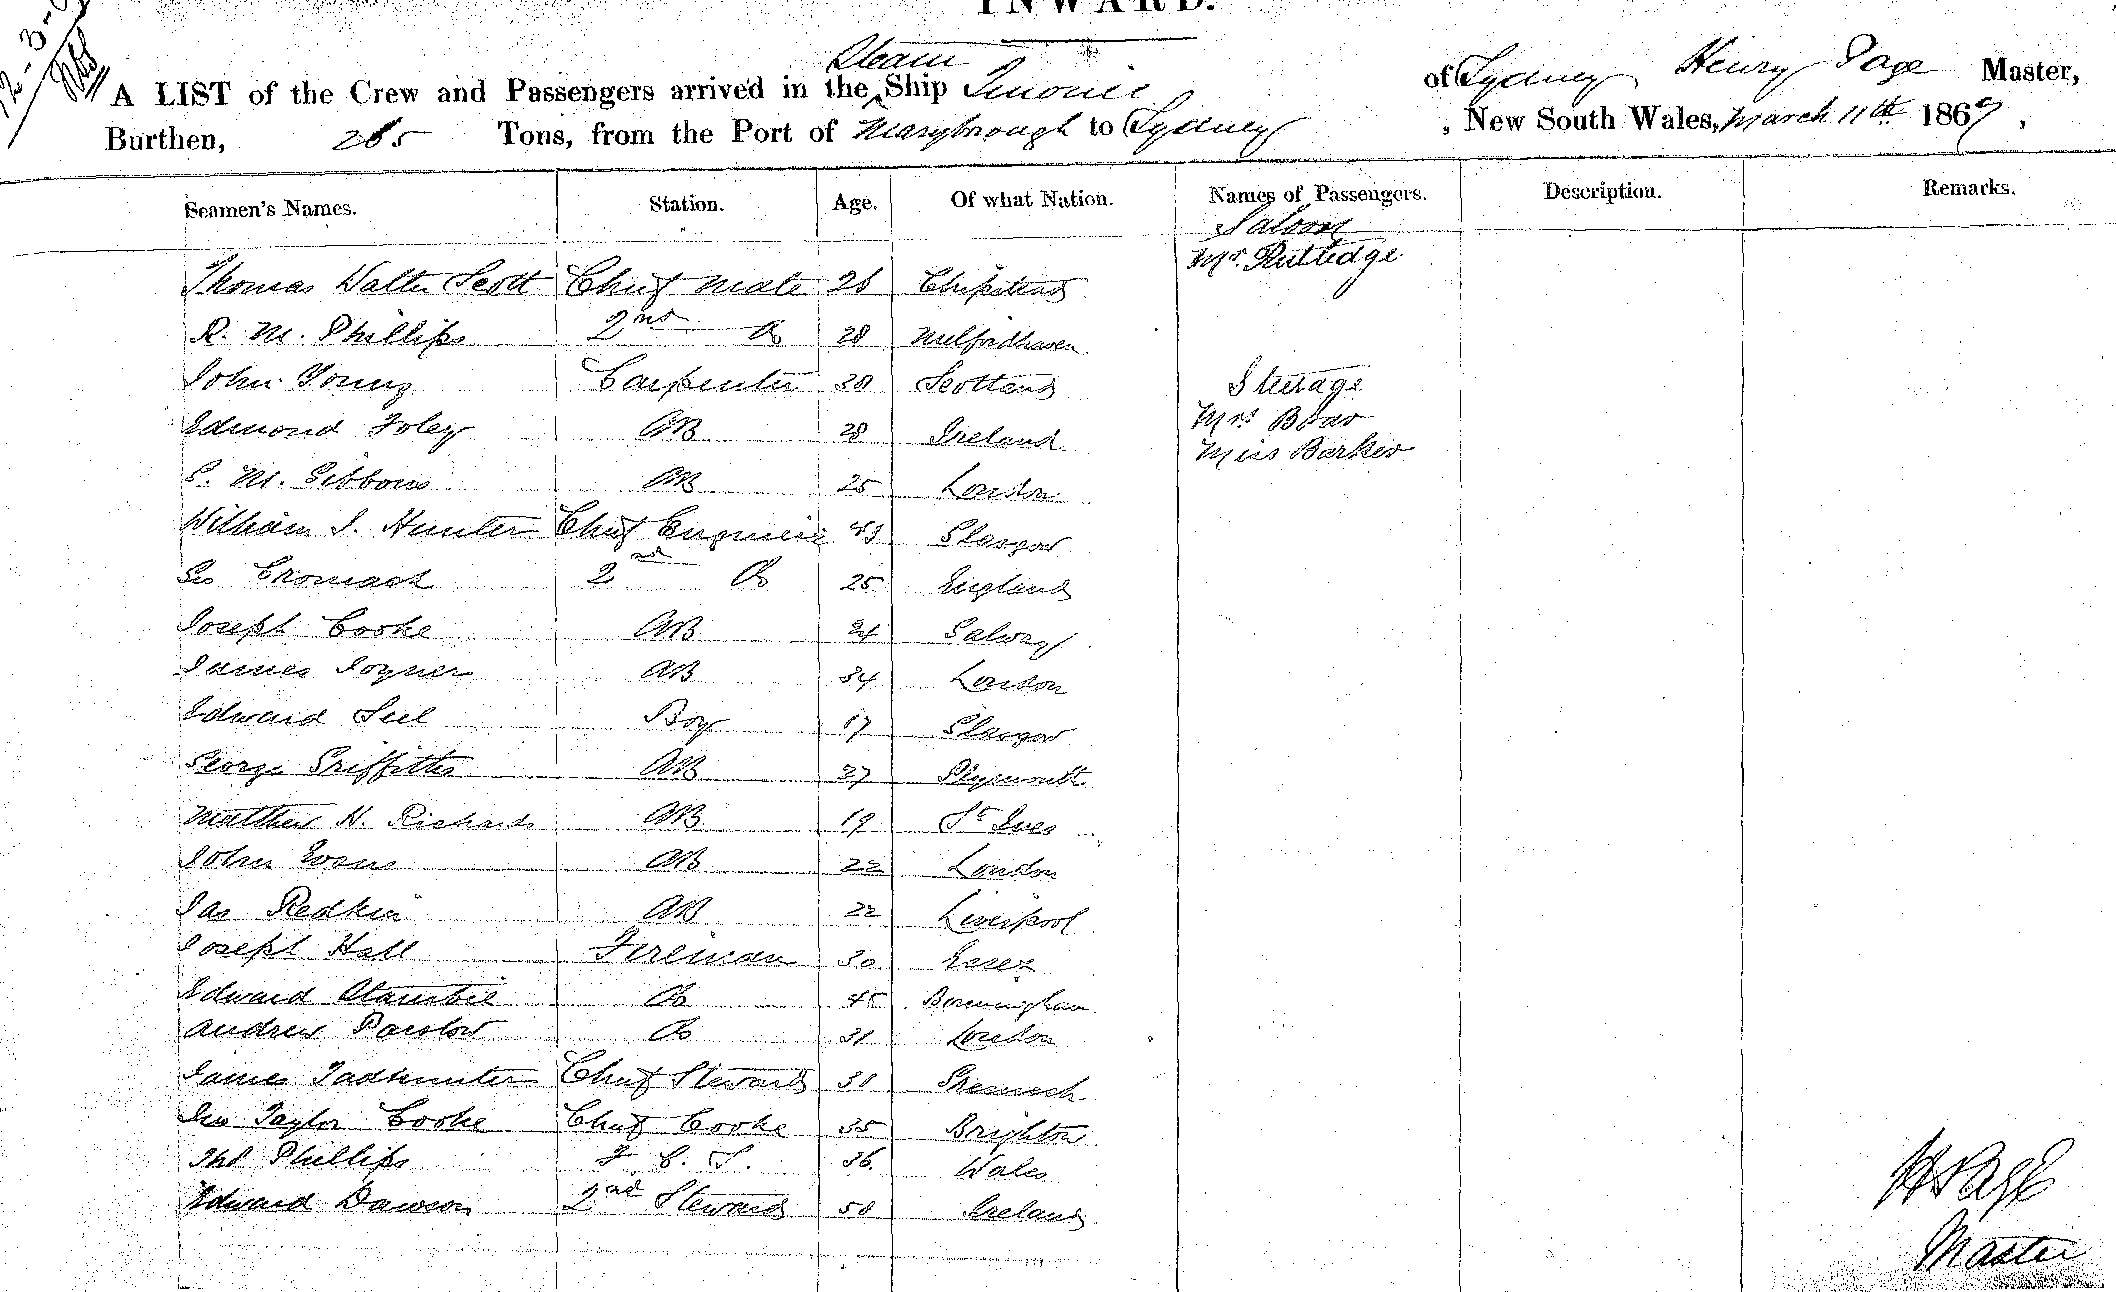 INWARD.
Steam
A LIST of the Crew and Passengers arrived in the Ship of Sydney Henry Page Master,
Burthen, 285 Tons, from the Port of Marybrough to Sydney , New South Wales, March 11th 1869 ,
Seamen's Names. Station. Age. Of what Nation. Names of Passengers. Description. Remarks.
Saloon
Mr. Rutledge
Thomas Walter Scott Chief Mate 26
R. M. Phillips 2nd Do 28 Milfordhaven
John Young Carpenter 30 Scotland Steerage
Edmond Foley AB 28 Ireland Mrs
S. M. Gibbons AB 25 London Miss Barker
William J. Hunter Chief Engineer 43 Glasgow
Geo Cromack 2nd Do 25 England
Joseph Cooke AB 24 Galway
James Joyner AB 34 London
Edward Boy 17 Glasgow
George Griffiths AB 27 Plymouth
Matthew H. Richards AB 19 St Ives
John Evans AB 22 London
Jas Redkin AB 22 Liverpool
Joseph Hall Fireman 30 Essex
Edward Do 45 Bermingham
Andrew Parslow Do 31 London
James Tadhunter Chief Steward 30
Jno Taylor Cooke Chief Cooke 35 Brighton
Thos Phillips F. C. S. 36 Wales
Edward Dawson 2nd Steward 50 Ireland
H Page
Master